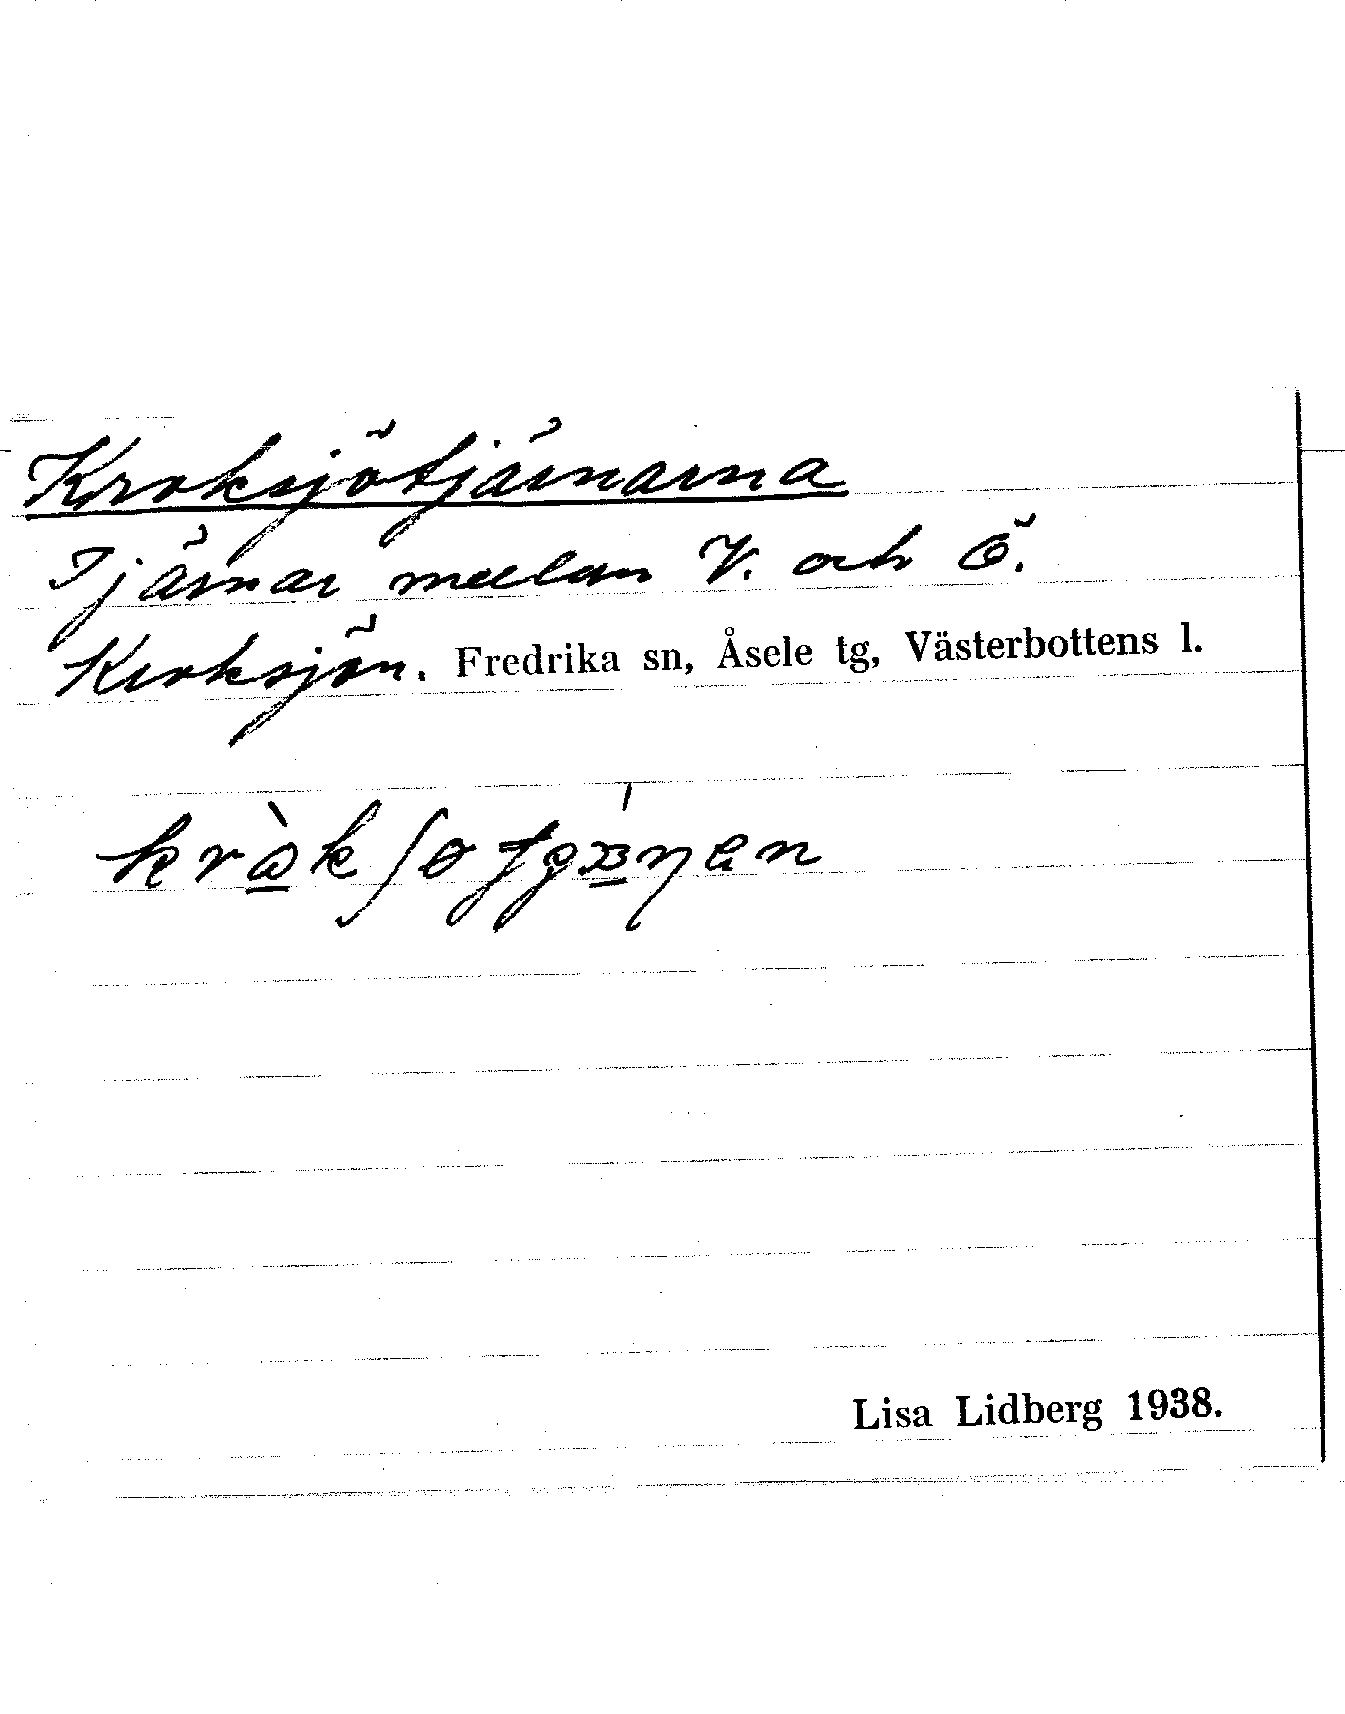 Kroksjötjärnarna
Tjärnar mellan V. och Ö.
Kroksjön. Fredrika sn, Åsele tg, Västerbottens l.
Lisa Lidberg 1938.